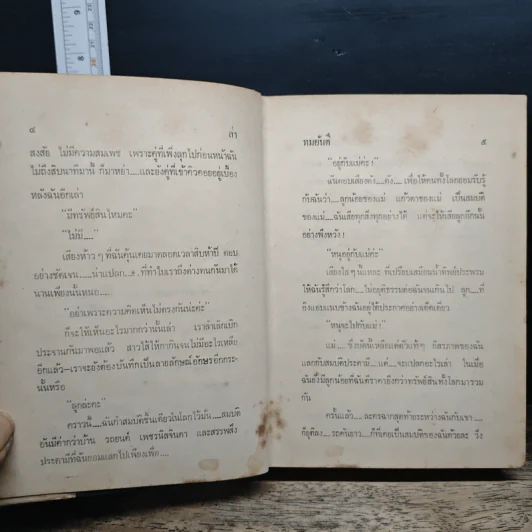 ๔ ล่า
สงสัย ไม่มีความสมเพช เพราะคู่ที่เพิ่งลุกไปก่อนหน้าฉัน
ไม่ถึงสิบนาทีมานี้ ก็มาหย่า....และยังคู่ที่เข้าคิวคอยอยู่เบื้อง
หลังฉันอีกเล่า
"มีทรัพย์สินไหมคะ"
"ไม่มี...."
เสียงห้าว ๆ ที่ฉันคุ้นเคยมาตลอดเวลาสิบห้าปี ตอบ
อย่างชัดเจน....น่าแปลก.... ที่ทำไมเราถึงต่างทนกันมาได้
นานเพียงนั้นหนอ....
"หย่าเพราะความคิดเห็นไม่ตรงกันน่ะค่ะ"
ก็จะให้เห็นอะไรมากกว่านั้นเล่า เราล้าเลิกเบิก
ประจานกันมาพอแล้ว สาวไส้ให้กากินจนไม่มีอะไรเหลือ
อีกแล้ว—เราจะยังต้องบันทึกเป็นลายลักษณ์อักษรอีกกระ-
นั้นหรือ
"ลูกล่ะคะ"
คราวนี้....ฉันกำสมบัติชิ้นเดียวในโลกไว้มั่น....สมบัติ
อันมีค่ากว่าบ้าน รถยนต์ เพชรนิลจินดา และสรรพสิ่ง
ประดามีที่ฉันยอมแลกไปเพียงเพื่อ....
ทมยันตี ๕
"อยู่กับแม่ค่ะ!"
ฉันตอบเสียงดัง....ดัง....เพื่อให้คนทั้งโลกยอมรับรู้
กับฉันว่า....ลูกน้อยของแม่ แก้วตาของแม่ เป็นสมบัติ
ของแม่....ฉันเสียทุกสิ่งทุกอย่างได้ แต่จะให้เสียลูกอีกนั้น
อย่าพึงหวัง!
"หนูอยู่กับแม่ค่ะ!"
เสียงใส ๆ นั้นแหละ ที่เปรียบเสมือนน้ำทิพย์ประพรม
ให้ฉันรู้สึกว่าโลก....ไม่อยุติธรรมต่อฉันจนเกินไป ลูก....ที่
ยืนแอบแนบข้างฉันอยู่ได้ประกาศอย่างเด็ดเดี่ยว
"หนูจะไปกับแม่!"
แลกกับสมบัติประดามี....แต่....จะแปลกอะไรเล่า ในเมื่อ
ฉันยังมีลูกน้อยที่ฉันตีราคายิ่งกว่าทรัพย์สินทั้งโลกมารวม
กัน
ครั้นแล้ว....ละครฉากสุดท้ายระหว่างฉันกับเขา....
ก็ยุติลง....รถคันยาว....ก็ที่เคยเป็นสมบัติของฉันด้วยละ วิ่ง